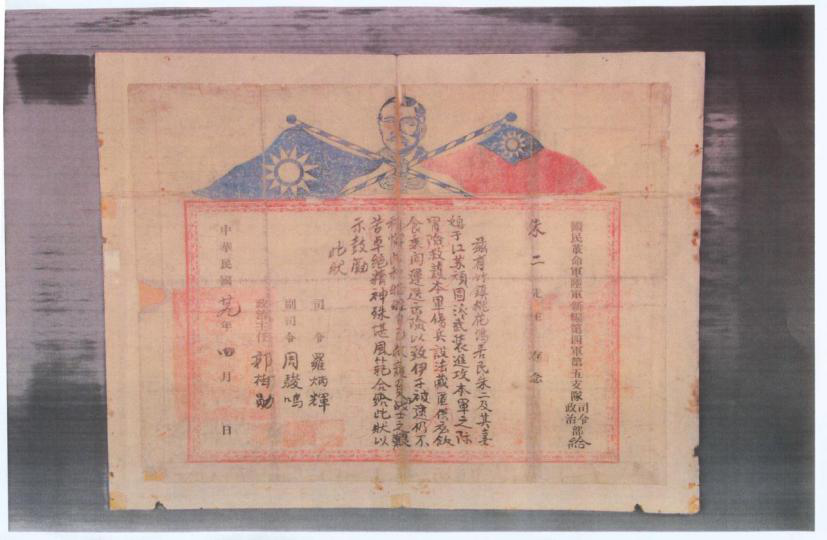 國民革命軍陸軍新編第四軍第五支隊司令部政治部給
朱二先生存念
茲有竹鎮桃花塢居民朱二及其妻
于江蘇頑固派武裝進攻本軍之際
冒險救護本軍傷兵設法藏匿供應飲
食 以致伊子被逮仍不
苦卓絕精神殊堪風範合給此狀以
示鼓勵
此狀
司令 羅炳輝
副司令 周駿鳴
政治主任 郭樹勛
中華民國廿九年四月 日